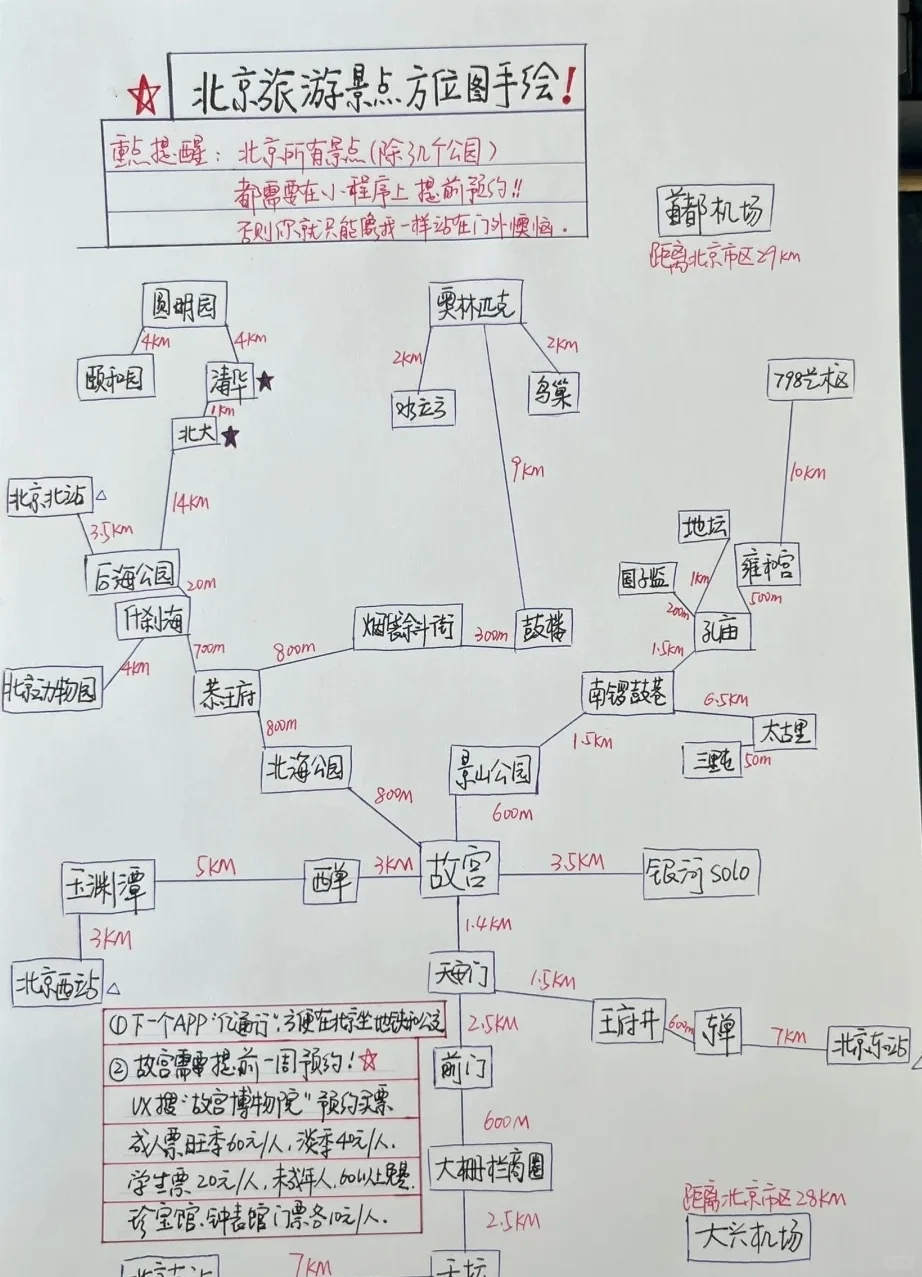 北京旅游景点方位图手绘!
重点提醒: 北京所有景点(除了几个公园)
都需要在小程序上提前预约!!
否则你就只能像我一样站在门外懊恼.
首都机场
距离北京市区29KM
圆明园
4KM
4KM
颐和园
清华
1KM
北大
奥林匹克
2KM
2KM
水立方
鸟巢
798艺术区
9KM
10KM
北京北站
3.5KM
14KM
后海公园
20m
什刹海
地坛
国子监
1KM
雍和宫
200m
500m
孔庙
700m
800m
烟袋斜街
300m
鼓楼
1.5KM
4KM
北京动物园
恭王府
南锣鼓巷
6.5KM
太古里
800m
1.5KM
三里屯
50m
北海公园
景山公园
800m
600m
玉渊潭
5KM
西单
3KM
故宫
3.5KM
银河SOLO
3KM
1.4KM
北京西站
天安门
1.5KM
王府井
600m
东单
7KM
北京东站
2.5KM
前门
600m
大栅栏商圈
2.5KM
①下一个APP"亿通行",方便在北京坐地铁和公交
②故宫需要提前一周预约!
VX搜"故宫博物院"预约买票
成人票旺季60元/人,淡季40元/人.
学生票20元/人,未成年人,60以上免费.
珍宝馆、钟表馆门票各10元/人.
距离北京市区28KM
大兴机场
7KM
天坛